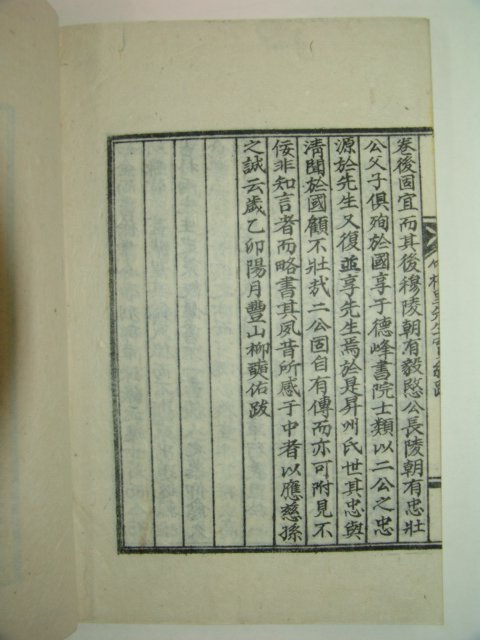 卷後固宜而其後穆陵朝有毅愍公長陵朝有忠壯
公父子俱殉於國享于德峰書院士類以二公之忠
源於先生又復並享先生焉於是昇州氏世其忠與
淸聞於國顧不壯哉二公固自有傳而亦可附見不
佞非知言者而略書其夙昔所感于中者以應慈孫
之誠云歲乙卯陽月豐山柳 佑跋